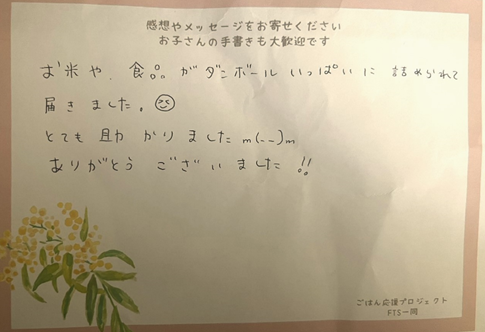 感想やメッセージをお寄せください
お子さんの手書きも大歓迎です
お米や、食品がダンボールいっぱいに詰められて
届きました。
とても助かりましたm(--)m
ありがとうございました!!
ごはん応援プロジェクト
FTS一同